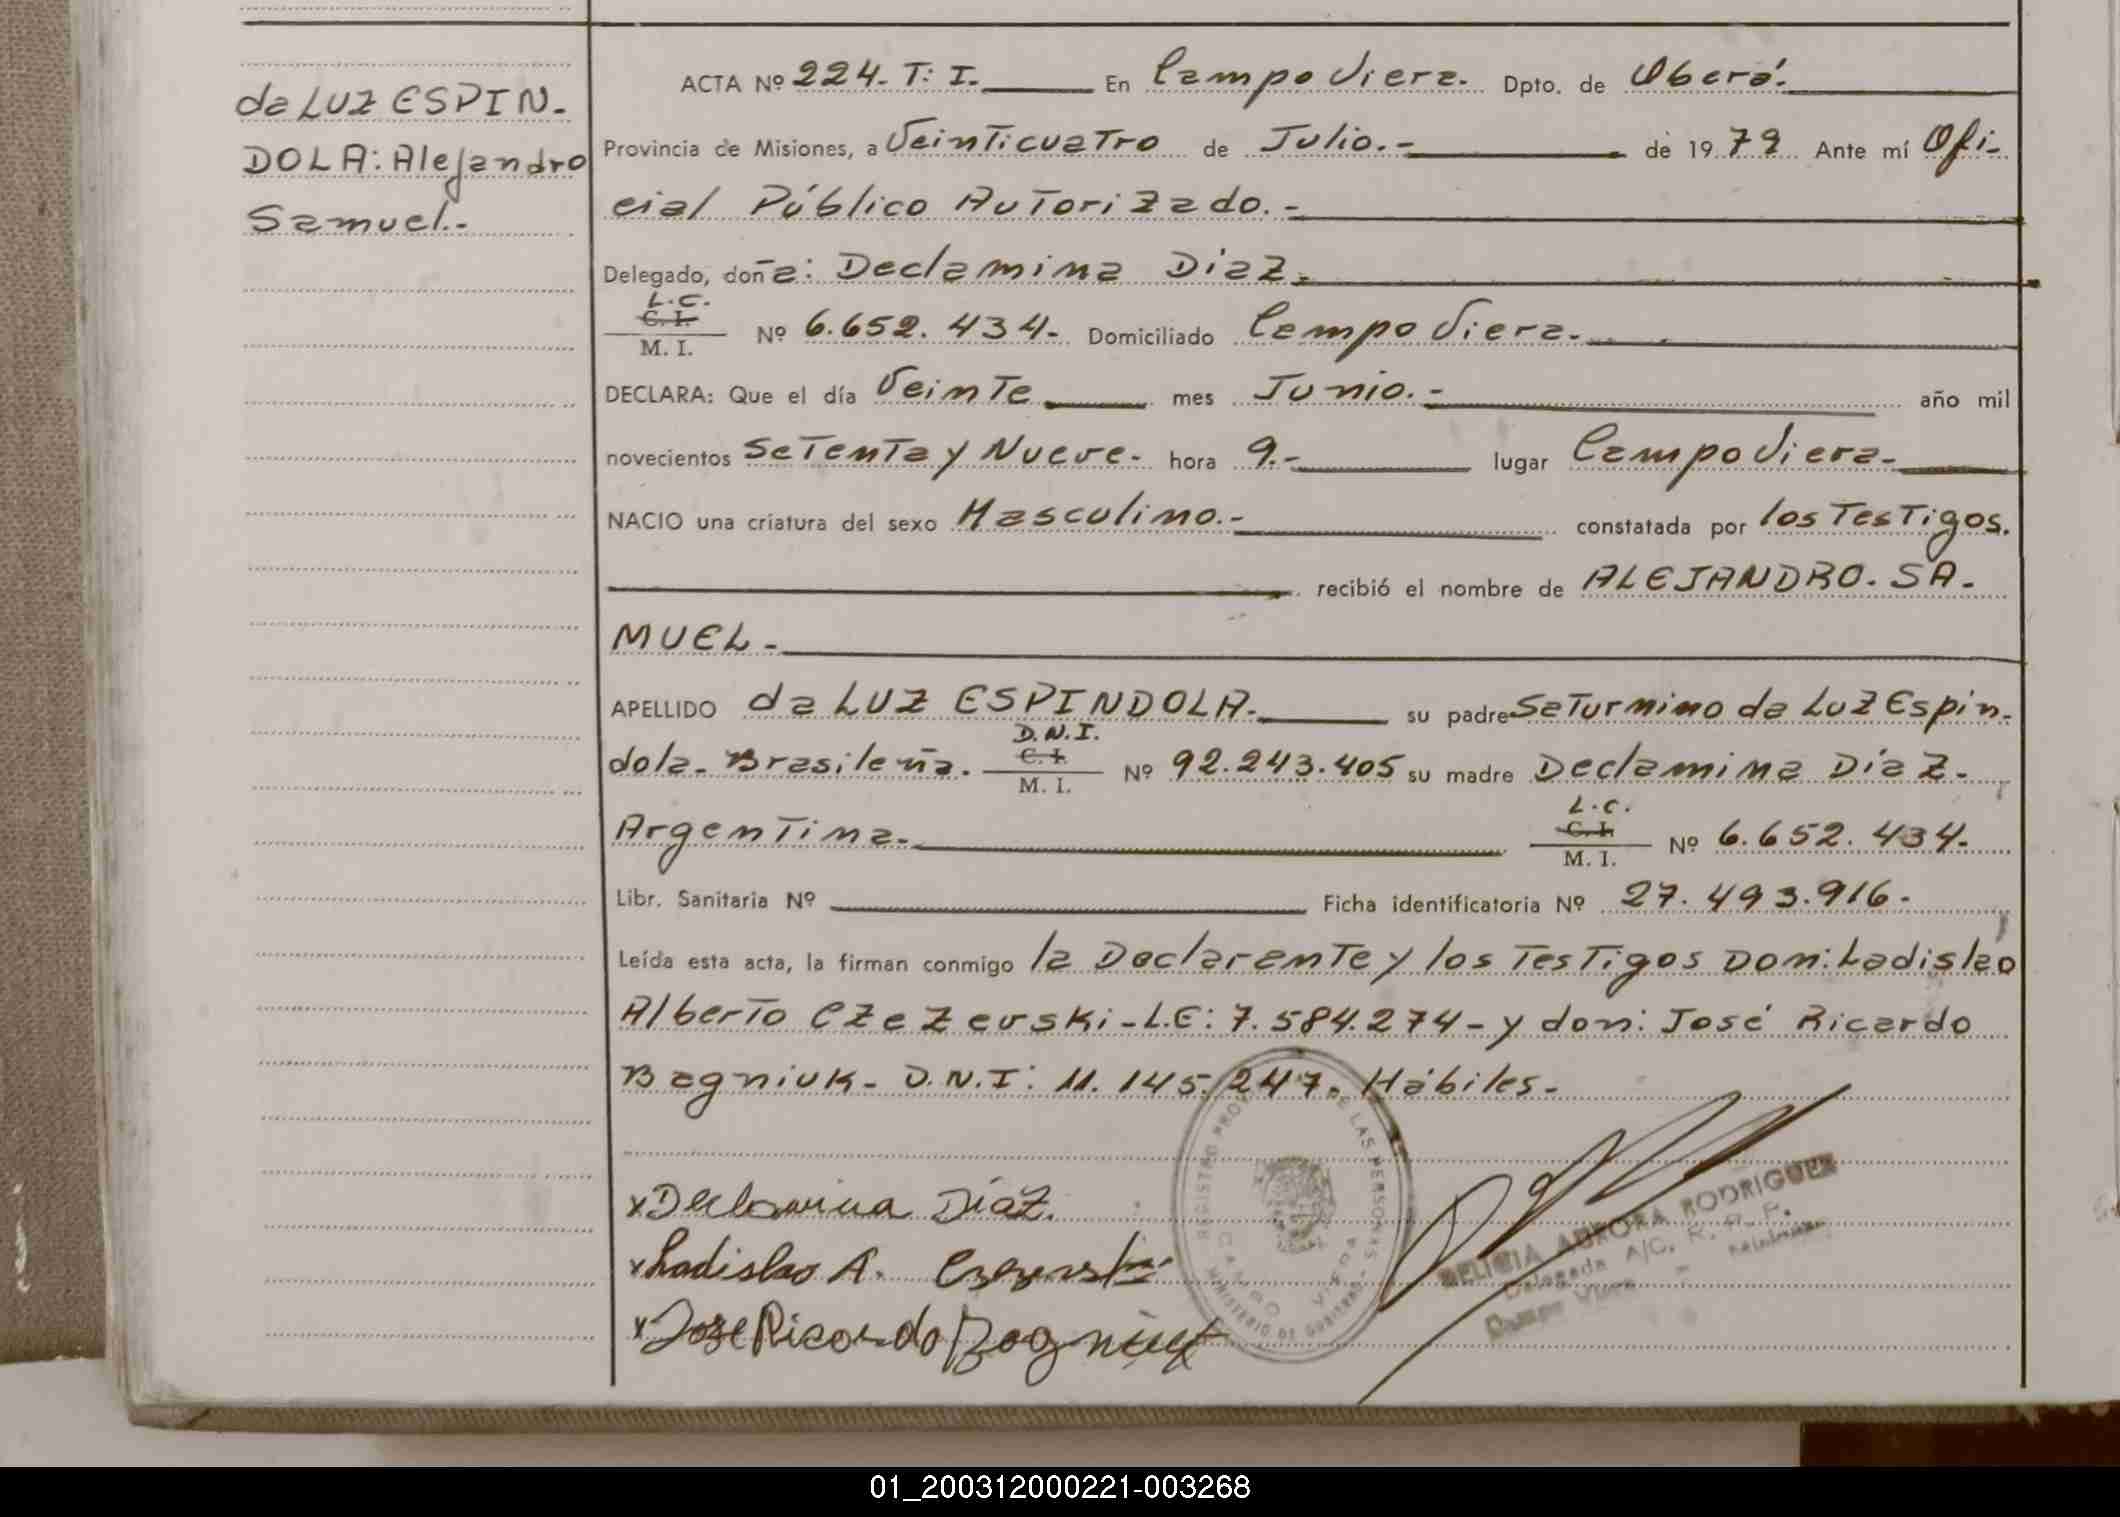 da LUZ ESPIN-
DOLA: Alejandro
Samuel.-
ACTA Nº 224. T: I. En Campo Viera. Dpto. de Oberá.
Provincia de Misiones, a Veinticuatro de Julio.- de 1979 Ante mí Ofi-
cial Público Autorizado.-
Delegado, doña: Declamina Diaz.
L.C.
C. I.
M. I.
Nº 6.652.434- Domiciliado Campo Viera.
DECLARA: Que el día Veinte mes Junio.- año mil
novecientos Setenta y Nueve- hora 9.- lugar Campo Viera-
NACIO una criatura del sexo Masculino.- constatada por los Testigos.
recibió el nombre de ALEJANDRO. SA-
MUEL-
APELLIDO da LUZ ESPINDOLA. su padre Saturnino da Luz Espin-
dola- Brasileña.
D.N.I.
C. I.
M. I.
Nº 92.243.405 su madre Declamina Díaz-
Argentina.
L.C.
C. I.
M. I.
Nº 6.652.434-
Libr. Sanitaria Nº Ficha identificatoria Nº 27.493.916-
Leída esta acta, la firman conmigo la Declarante y los Testigos Don: Ladislao
Alberto Czezevski-L.E: 7.584.274- y don: José Ricardo
Bagniuk- D.N.I: 11.145.247. Hábiles-
x Declamina Díaz.
x Ladislao A.
x Jose Ricardo Bagniuk
REGISTRO DE LAS PERSONAS
CAMPO VIERA
MINISTERIO DE GOBIERNO
DELICIA AURORA RODRIGUEZ
Delegada A/C. R. P. P.
Campo Viera - Misiones
01_200312000221-003268